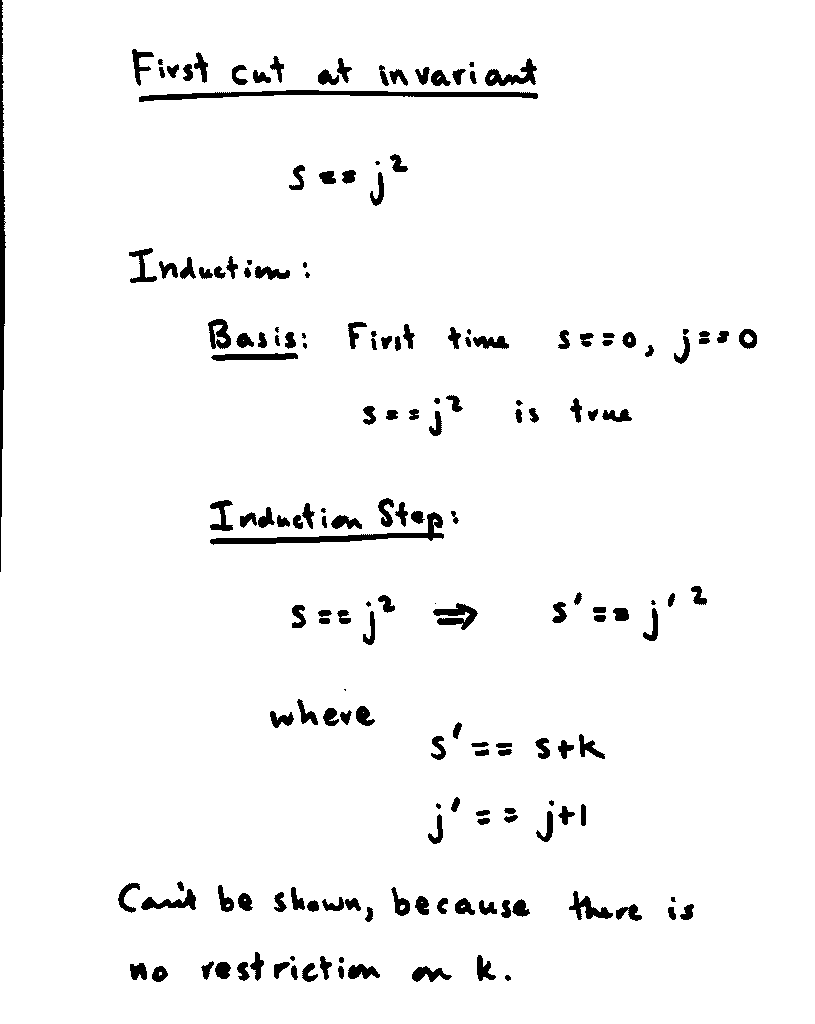 First cut at invariant
s == j²
Induction:
Basis: First time s==0, j==0
s==j² is true
Induction Step:
s==j² ⇒ s'==j'²
where
s' == s+k
j' == j+1
Can't be shown, because there is
no restriction on k.